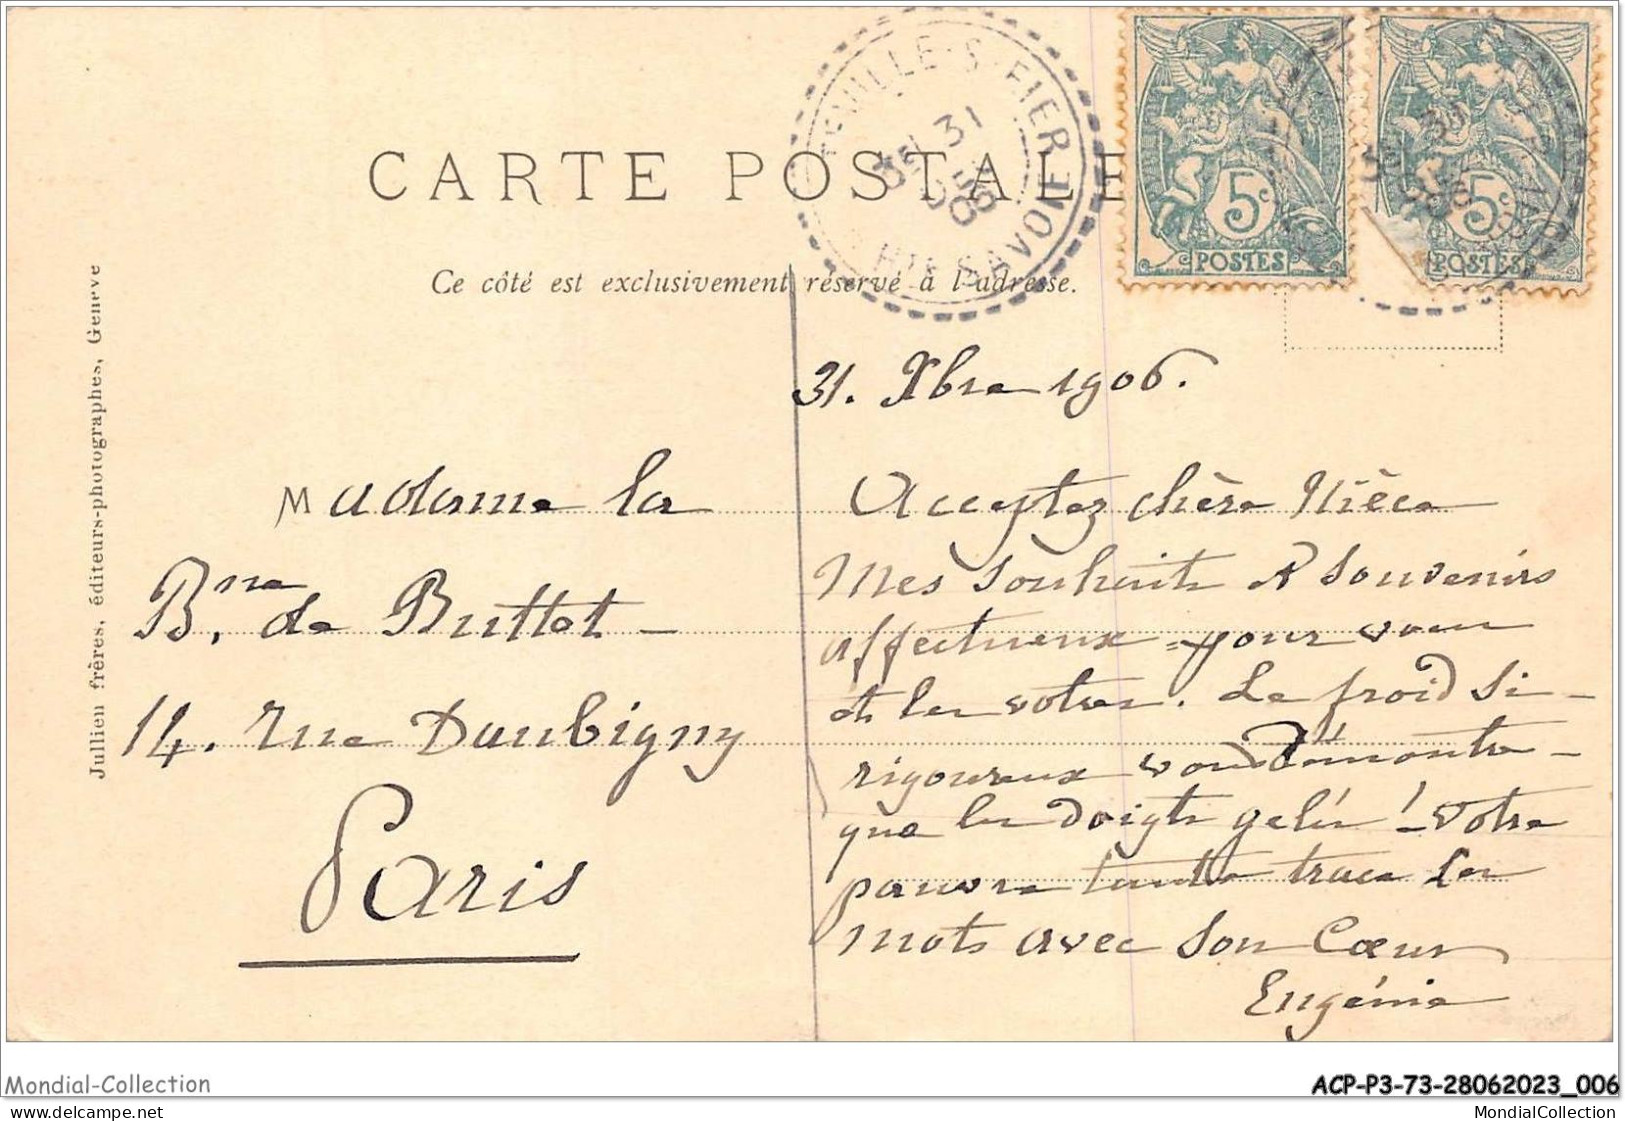 CARTE POSTALE
Ce côté est exclusivement réservé à l'adresse.
Jullien frères, éditeurs-photographes, Genève
SEVILLE-S-FIER
31
06
HTE SAVOIE
5c
POSTES
5c
POSTES
31. Xbre 1906.
Madame la
Bne de Buttet
14. rue Daubigny
Paris
Acceptez chère Nièce
Mes souhaits et souvenirs
affectueux pour vous
et les votres. Le froid si
rigoureux vous démontre
que les doigts gelés! Votre
pauvre tante trace ces
mots avec son Cœur
Eugénie
Mondial-Collection
ACP-P3-73-28062023_006
© delcampe.net
MondialCollection